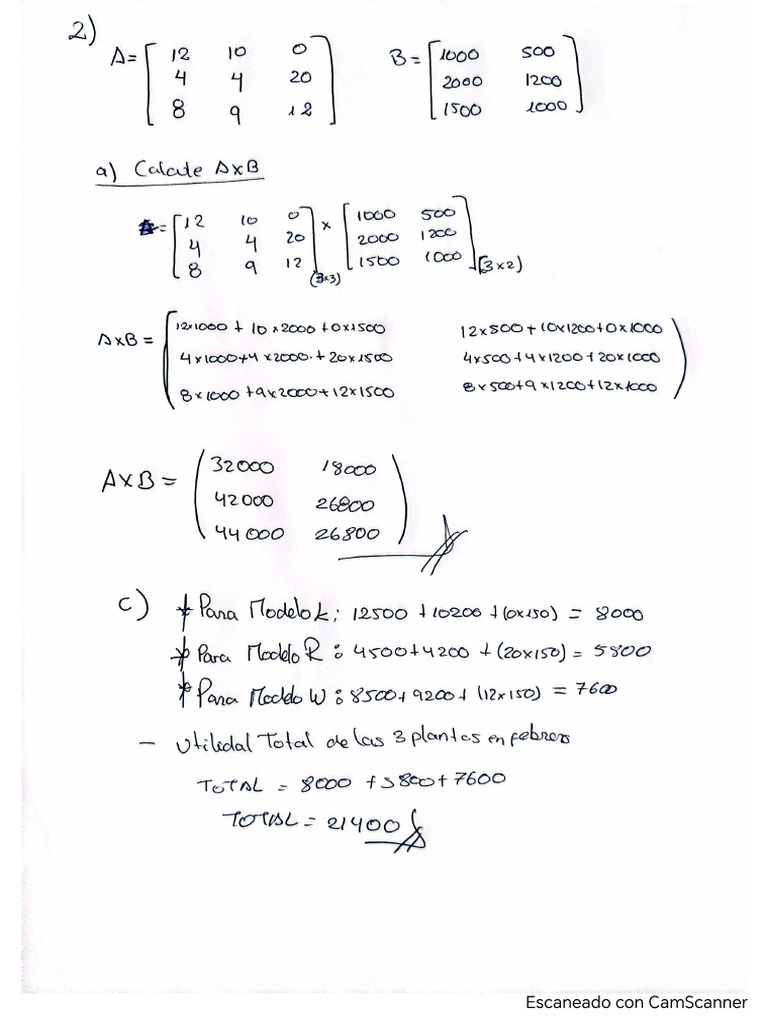 2)
A = [ 12 10 0
4 4 20
8 9 12 ]
B = [ 1000 500
2000 1200
1500 1000 ]
a) Calcule A x B
= [ 12 10 0
4 4 20
8 9 12 ] (3x3)
x [ 1000 500
2000 1200
1500 1000 ] (3x2)
A x B = ( 12x1000 + 10x2000 + 0x1500 12x500 + 10x1200 + 0x1000
4x1000 + 4x2000 + 20x1500 4x500 + 4x1200 + 20x1000
8x1000 + 9x2000 + 12x1500 8x500 + 9x1200 + 12x1000 )
A x B = ( 32000 18000
42000 26800
44000 26800 )
c) * Para Modelo L: 12500 + 10200 + (0x150) = 8000
* Para Modelo R: 4500 + 4200 + (20x150) = 5800
* Para Modelo W: 8500 + 9200 + (12x150) = 7600
- Utilidal Total de las 3 plantas en febrero
TOTAL = 8000 + 5800 + 7600
TOTAL = 21400
Escaneado con CamScanner